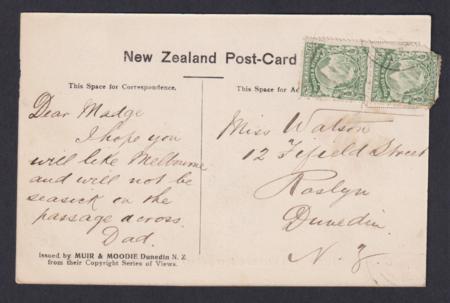 New Zealand Post-Card
This Space for Correspondence.
Dear Madge
I hope you
will like Melbourne
and will not be
seasick on the
passage across.
Dad.
Issued by MUIR & MOODIE Dunedin N. Z
from their Copyright Series of Views.
This Space for Ad
Miss Watson
12 Fifield Street
Roslyn
Dunedin.
N. Z.